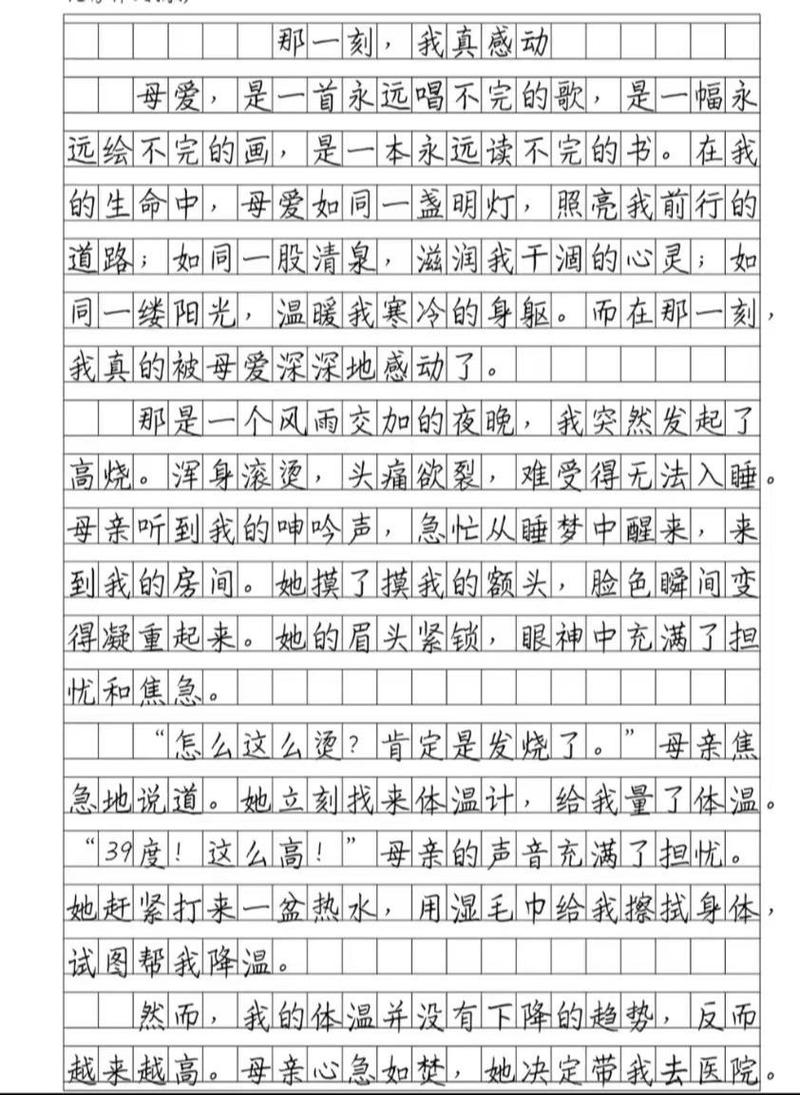 那一刻，我真感动
母爱，是一首永远唱不完的歌，是一幅永
远绘不完的画，是一本永远读不完的书。在我
的生命中，母爱如同一盏明灯，照亮我前行的
道路；如同一股清泉，滋润我干涸的心灵；如
同一缕阳光，温暖我寒冷的身躯。而在那一刻，
我真的被母爱深深地感动了。
那是一个风雨交加的夜晚，我突然发起了
高烧。浑身滚烫，头痛欲裂，难受得无法入睡。
母亲听到我的呻吟声，急忙从睡梦中醒来，来
到我的房间。她摸了摸我的额头，脸色瞬间变
得凝重起来。她的眉头紧锁，眼神中充满了担
忧和焦急。
“怎么这么烫？肯定是发烧了。”母亲焦
急地说道。她立刻找来体温计，给我量了体温。
“39度！这么高！”母亲的声音充满了担忧。
她赶紧打来一盆热水，用湿毛巾给我擦拭身体，
试图帮我降温。
然而，我的体温并没有下降的趋势，反而
越来越高。母亲心急如焚，她决定带我去医院。